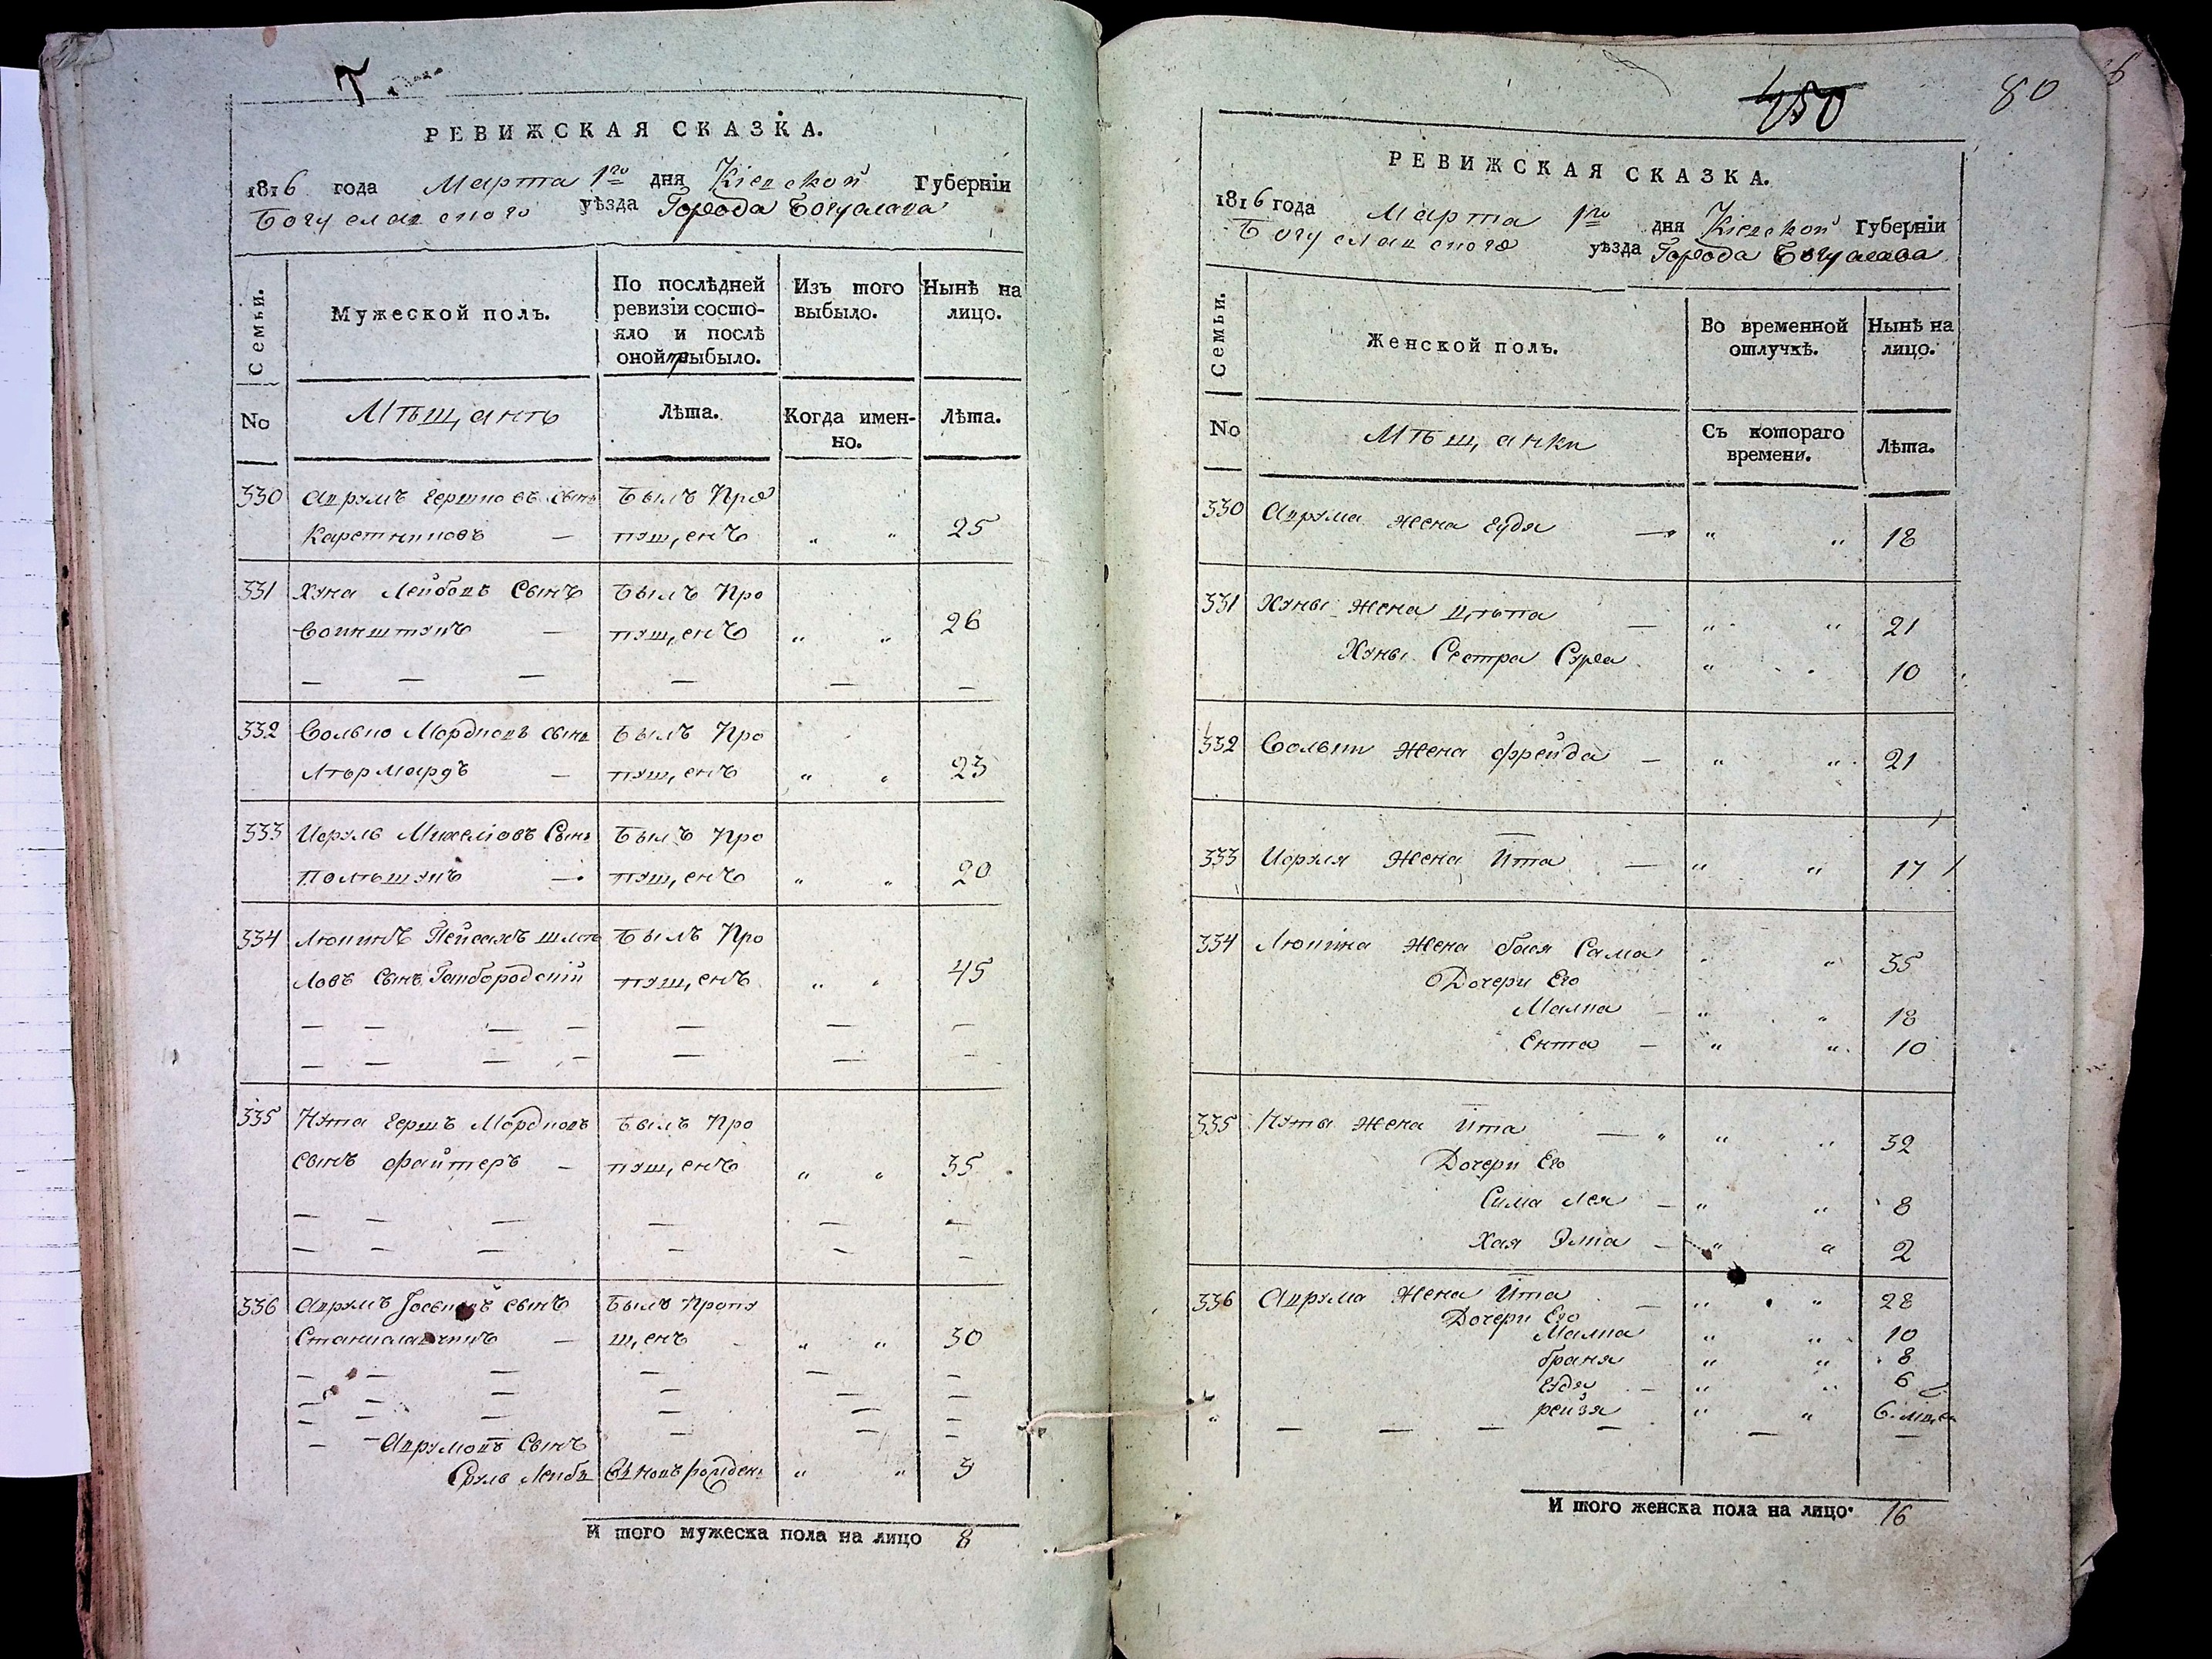 РЕВИЖСКАЯ СКАЗКА.
1816 года Марта 1го дня Кіевской Губерніи
Богуславского уѣзда Города Богуслава
Семьи.
Мужеской полъ.
По послѣдней ревизіи состо-
яло и послѣ
оной прибыло.
Изъ того
выбыло.
Нынѣ на
лицо.
No
Мѣщанѣ
Лѣта.
Когда имен-
но.
Лѣта.
330 Аврумъ Гершковъ сынъ Былъ Про
Каретниковъ — пущенъ „ „ 25
331 Хуна Лейбовъ Сынъ Былъ Про
— пущенъ „ „ 26
— — — — — —
332 Волько Мордковъ сынъ Былъ Про
— пущенъ „ „ 23
333 Исруль Михелiовъ Сынъ Былъ Про
— пущенъ „ „ 20
334 Пейсахъ Былъ Про
ловъ Сынъ пущенъ „ „ 45
— — — — — — —
— — — — — — —
335 Нута Гершъ Мордковъ Былъ Про
Сынъ Файтеръ — пущенъ „ „ 35
— — — — — —
— — — — — —
336 Аврумъ сынъ Былъ Пропу
— щенъ „ „ 30
— — — — — —
— — — — — —
— — — — — —
— Аврумовъ Сынъ — — —
Сруль Лейба вновь рожденъ „ „ 3
И того мужеска пола на лицо 8
450
80
РЕВИЖСКАЯ СКАЗКА.
1816 года Марта 1го дня Кіевской Губерніи
Богуславского уѣзда Города Богуслава
Семьи.
Женской полъ.
Во временной
отлучкѣ.
Нынѣ на
лицо.
No
Мѣщанки
Съ котораго
времени.
Лѣта.
330 Аврума жена Гудя — „ „ 18
331 Хуны жена Ципа — „ „ 21
Хуны Сестра Сура „ „ 10
332 Вольки жена Фрейда — „ „ 21
333 Исруля Жена Ита — „ „ 17
334 Жена Бася Сама „ „ 35
Дочери Его
Малка — „ „ 18
Ента — „ „ 10
335 Нуты жена Ита — „ „ 32
Дочери Его
Сима Лея — „ „ 8
Хая Элта — „ „ 2
336 Аврума Жена Ита — „ „ 28
Дочери Его
Малка „ „ 10
Браня „ „ 8
Гудя — „ „ 6
рейзя „ „ 6 
— — — — — —
И того женска пола на лицо. 16